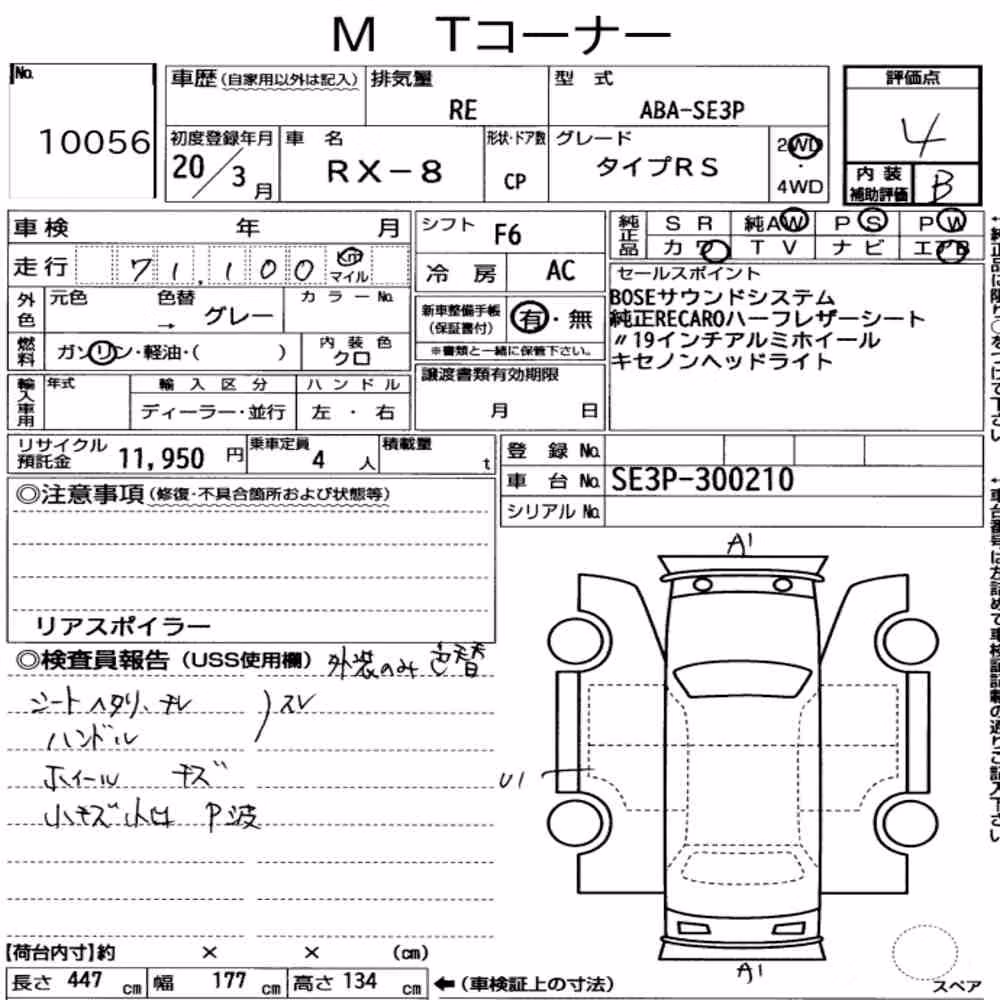 M Tコーナー
No.
10056
車歴(自家用以外は記入)
排気量
RE
型 式
ABA-SE3P
評価点
4
内装
補助評価
B
初度登録年月
20/3月
車 名
RX-8
形状・ドア数
CP
グレード
タイプRS
2WD
・
4WD
車検 年 月
シフト
F6
純正品
SR 純AW PS PW
カワ TV ナビ エアB
走行 71,100 km
マイル
冷房
AC
セールスポイント
BOSEサウンドシステム
純正RECAROハーフレザーシート
〃19インチアルミホイール
キセノンヘッドライト
外色
元色 色替 カラーNo.
→ グレー
新車整備手帳
(保証書付)
有・無
※書類と一緒に保管下さい。
燃料
ガソリン・軽油・( )
内装色
クロ
譲渡書類有効期限
月 日
輸入車用
年式
輸入区分
ハンドル
ディーラー・並行
左・右
リサイクル
預託金
11,950 円
乗車定員
4 人
積載量
t
登録No.
車台No.
SE3P-300210
シリアルNo.
◎注意事項(修復・不具合箇所および状態等)
リアスポイラー
◎検査員報告(USS使用欄) 外装のみ色替
シートヘタリ、チレ
ハンドル
)スレ
ホイール キズ
小キズ小凹 P波
A1
U1
A1
スペア
【荷台内寸】約 × × (cm)
長さ 447 cm 幅 177 cm 高さ 134 cm ←(車検証上の寸法)